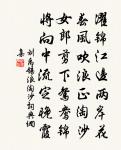 濯錦江邊兩岸花
春風吹浪正淘沙
女郎剪下鴛鴦錦
將向中流定晚霞
劉禹錫浪淘沙詞典網
集